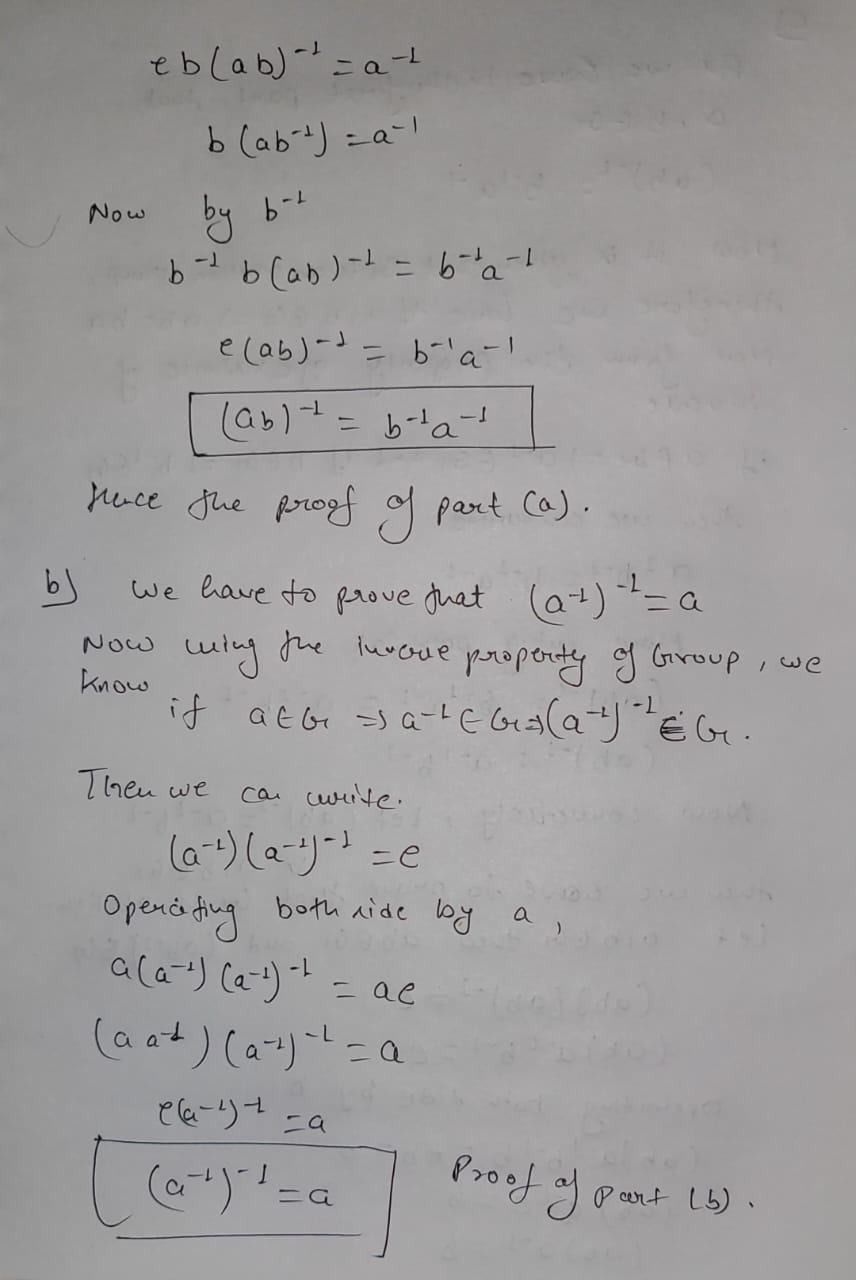 eb(ab)⁻¹ = a⁻¹
b(ab⁻¹) = a⁻¹
Now by b⁻¹
b⁻¹ b(ab)⁻¹ = b⁻¹a⁻¹
e(ab)⁻¹ = b⁻¹a⁻¹
(ab)⁻¹ = b⁻¹a⁻¹
Hence the proof of part (a).
b) We have to prove that (a⁻¹)⁻¹ = a
Now using the inverse property of Group, we
know
if a∈G ⇒ a⁻¹∈G ⇒ (a⁻¹)⁻¹ ∈ G.
Then we can write.
(a⁻¹)(a⁻¹)⁻¹ = e
Operating both side by a,
a(a⁻¹)(a⁻¹)⁻¹ = ae
(a a⁻¹)(a⁻¹)⁻¹ = a
e(a⁻¹)⁻¹ = a
(a⁻¹)⁻¹ = a Proof of Part (b).